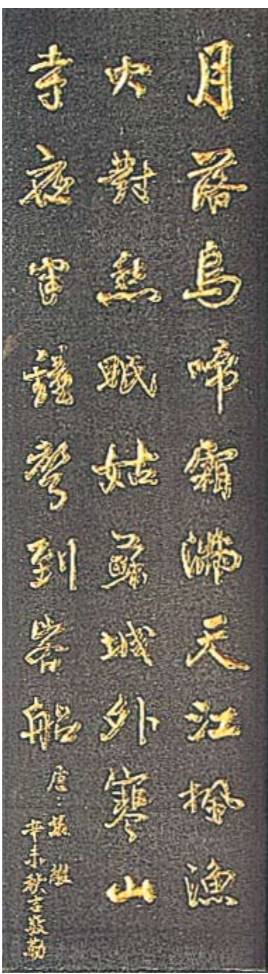 月落烏啼霜滿天江楓漁
火對愁眠姑蘇城外寒山
寺夜半鐘聲到客船
唐張繼
辛未秋吉敬勒